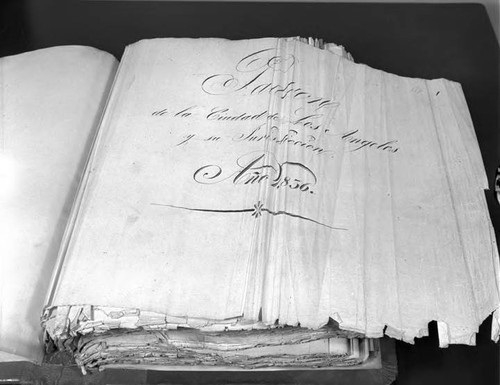 Padron
de la Ciudad de Los Angeles
y su Jurisdiccion.
Año 1836.